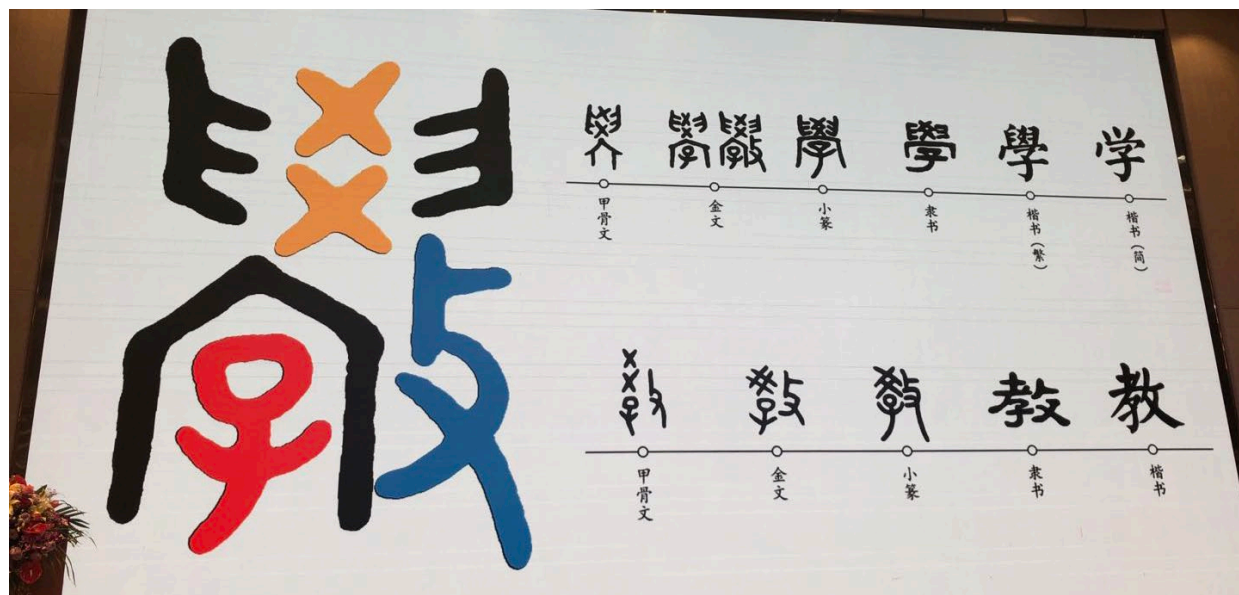 斅
學 學 斅 學 學 學 学
甲骨文 金文 小篆 隶书 楷书（繁） 楷书（简）
教 教 教 教 教
甲骨文 金文 小篆 隶书 楷书